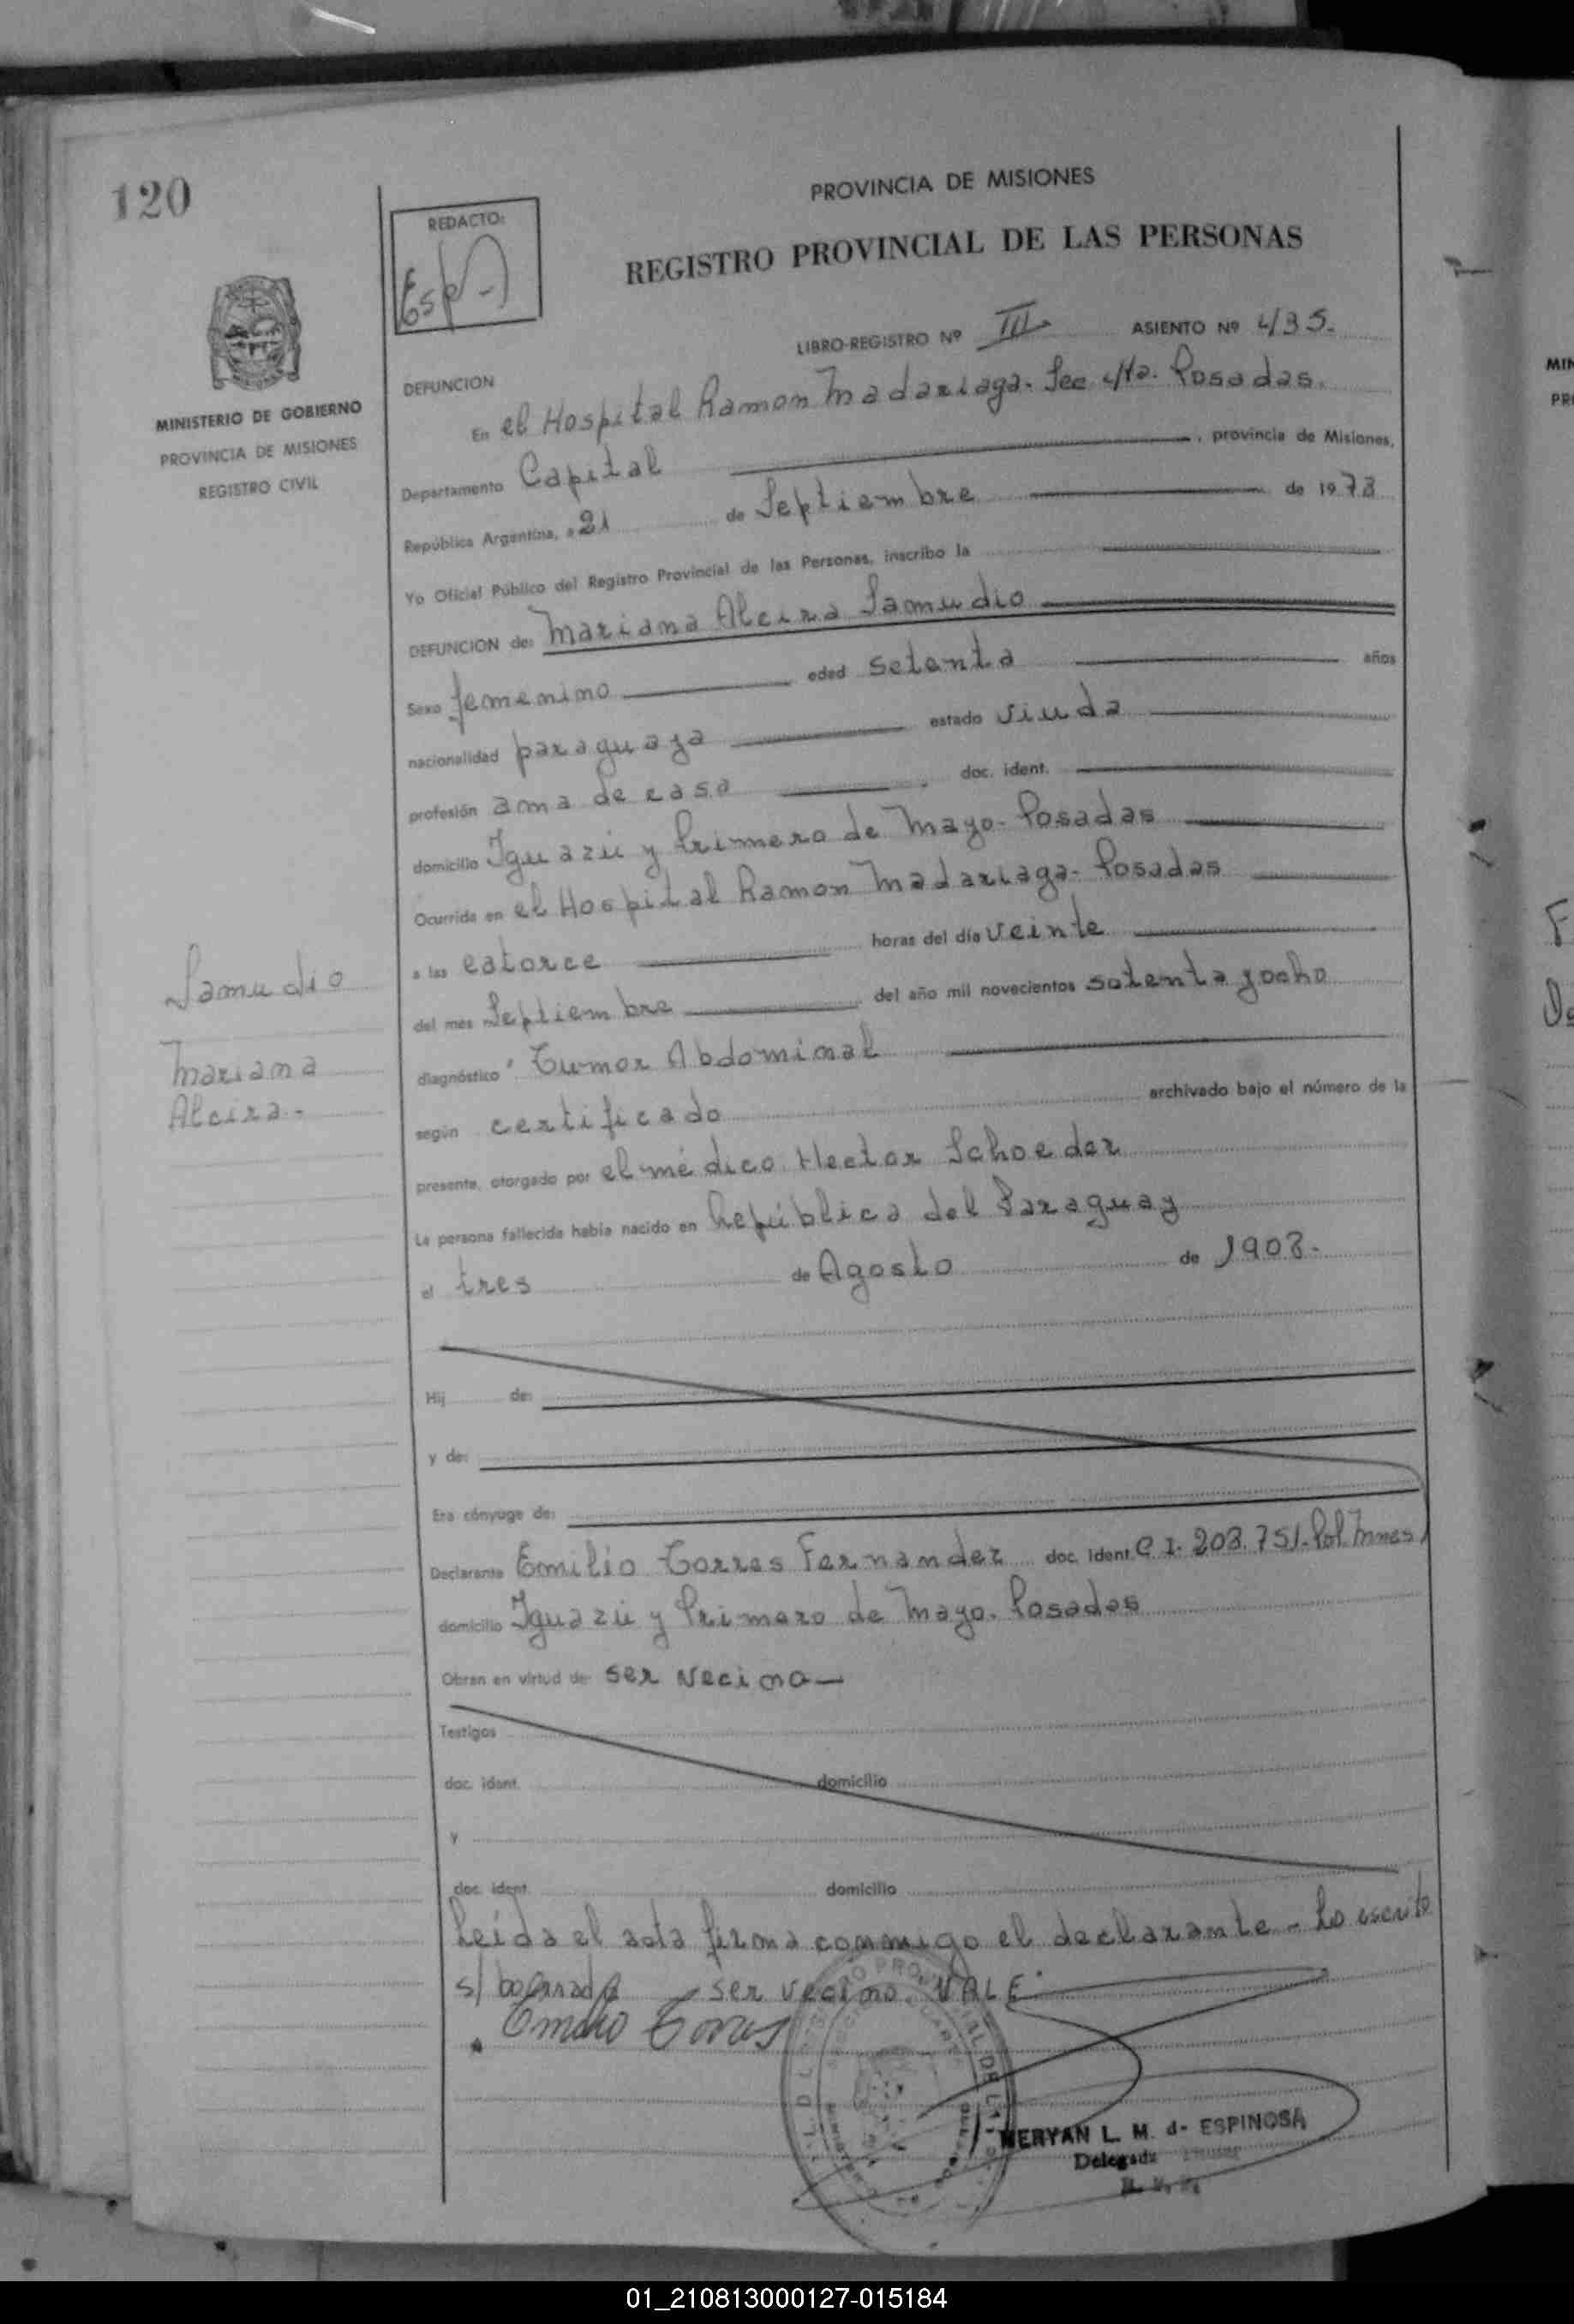 120
REDACTO:
Esp
PROVINCIA DE MISIONES
REGISTRO PROVINCIAL DE LAS PERSONAS
MINISTERIO DE GOBIERNO
PROVINCIA DE MISIONES
REGISTRO CIVIL
LIBRO-REGISTRO Nº III ASIENTO Nº 435.
DEFUNCION
En el Hospital Ramon Madariaga. Sec. 4ta. Posadas.
Departamento Capital, provincia de Misiones,
República Argentina, a 21 de Septiembre de 1978
Yo Oficial Público del Registro Provincial de las Personas, inscribo la
DEFUNCION de: Mariana Alcira Samudio
Sexo femenino edad setenta años
nacionalidad paraguaya estado viuda
profesión ama de casa, doc. ident.
domicilio Iguazú y Primero de Mayo - Posadas
Ocurrida en el Hospital Ramon Madariaga - Posadas
a las catorce horas del día veinte
del mes Septiembre del año mil novecientos setenta y ocho
diagnóstico Tumor Abdominal
según certificado archivado bajo el número de la
presente, otorgado por el médico Hector Schoeder
La persona fallecida había nacido en República del Paraguay
el tres de Agosto de 1908.
Samudio
Mariana
Alcira.-
Hij de:
y de:
Era cónyuge de:
Declarante Emilio Torres Fernandez doc. ident. C.I. 203.751. Pol. Mnes
domicilio Iguazú y Primero de Mayo. Posadas
Obran en virtud de ser vecino
Testigos
doc. ident. domicilio
y
doc. ident. domicilio
Leída el acta firma conmigo el declarante - Lo escrito
s/ borrado ser vecino. VALE
Emilio Torres
MERYAN L. M. d- ESPINOSA
Delegada
MIN
PR
01_210813000127-015184